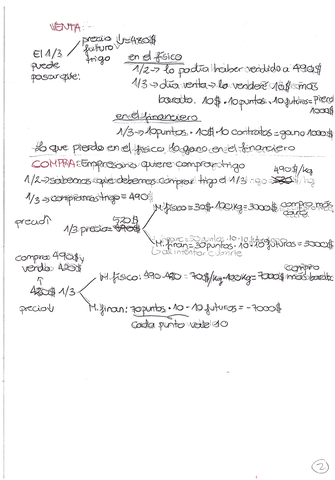 VENTA:
El 1/3 puede pasar que:
precio futuro trigo ↓=480$
en el físico
1/2→ lo podía haber vendido a 490$
1/3→ día venta→ lo venderé 10$ más barato. 10$·10 puntos·10 futuros= pierdo 1000$
en el financiero
1/3→ 10 puntos · 10$ · 10 contratos = gano 1000$
Lo que pierdo en el físico, lo gano en el financiero
COMPRA: Empresario quiere comprar trigo
1/2→ sabemos que debemos comprar trigo el 1/3 490$/kg
1/3→ compramos trigo = 490$
precio↑ 1/3 precio= 520$
M. físico = 30$ · 100kg = 3000$ compro más caro
M. finan = 30 puntos · 10 · 10 futuros = 3000$
compra: 490$ y
venda: 420$
↑
420$ 1/3
precio↓
M. físico: 490-420 = 70$/kg·100kg = 7000$ compro más barato
M. finan: 70 puntos · 10 - 10 futuros = -7000$
Cada punto vale 10
2